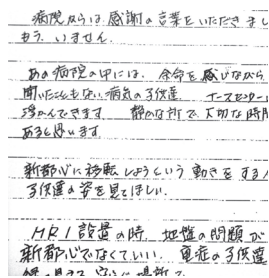 病院からは感謝の言葉をいただきまし
もう いません
あの病院の中には、余命を感じながら
聞いたこともない病気の子供達 ナースセンター
浮かんできます 静かな所で 大切な時間
あると思います
新都心に移転しようという動きをする人
子供達の姿を見てほしい。
MRI設置の時、地盤の問題が
新都心でなくていい、重症の子供達